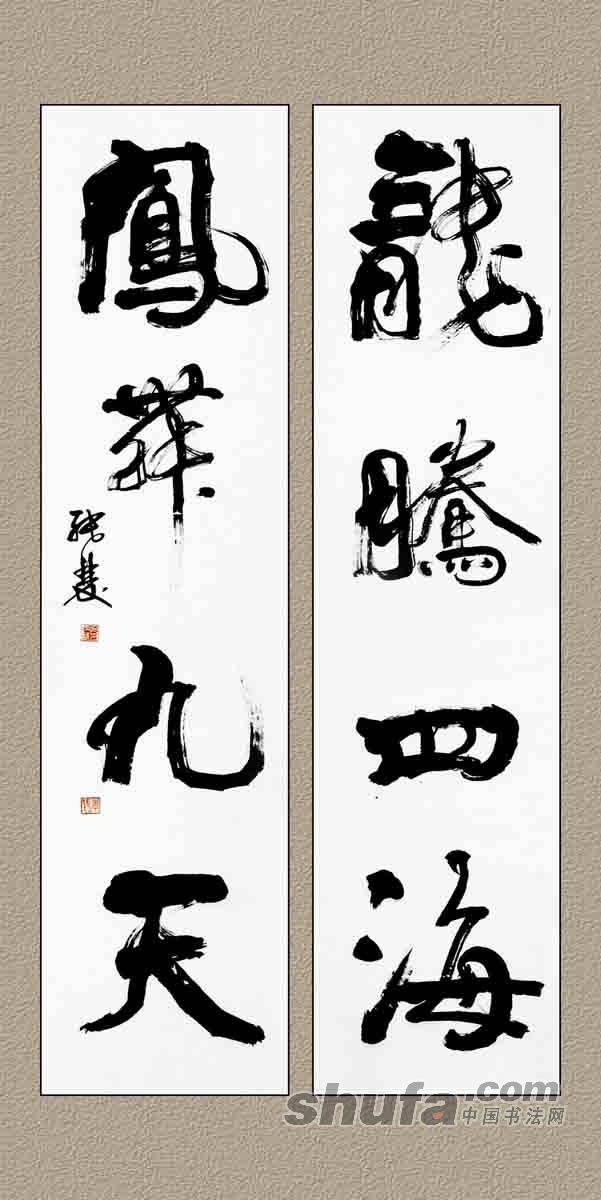 龍騰四海
鳳舞九天
張慧
shufa.com
中国书法网